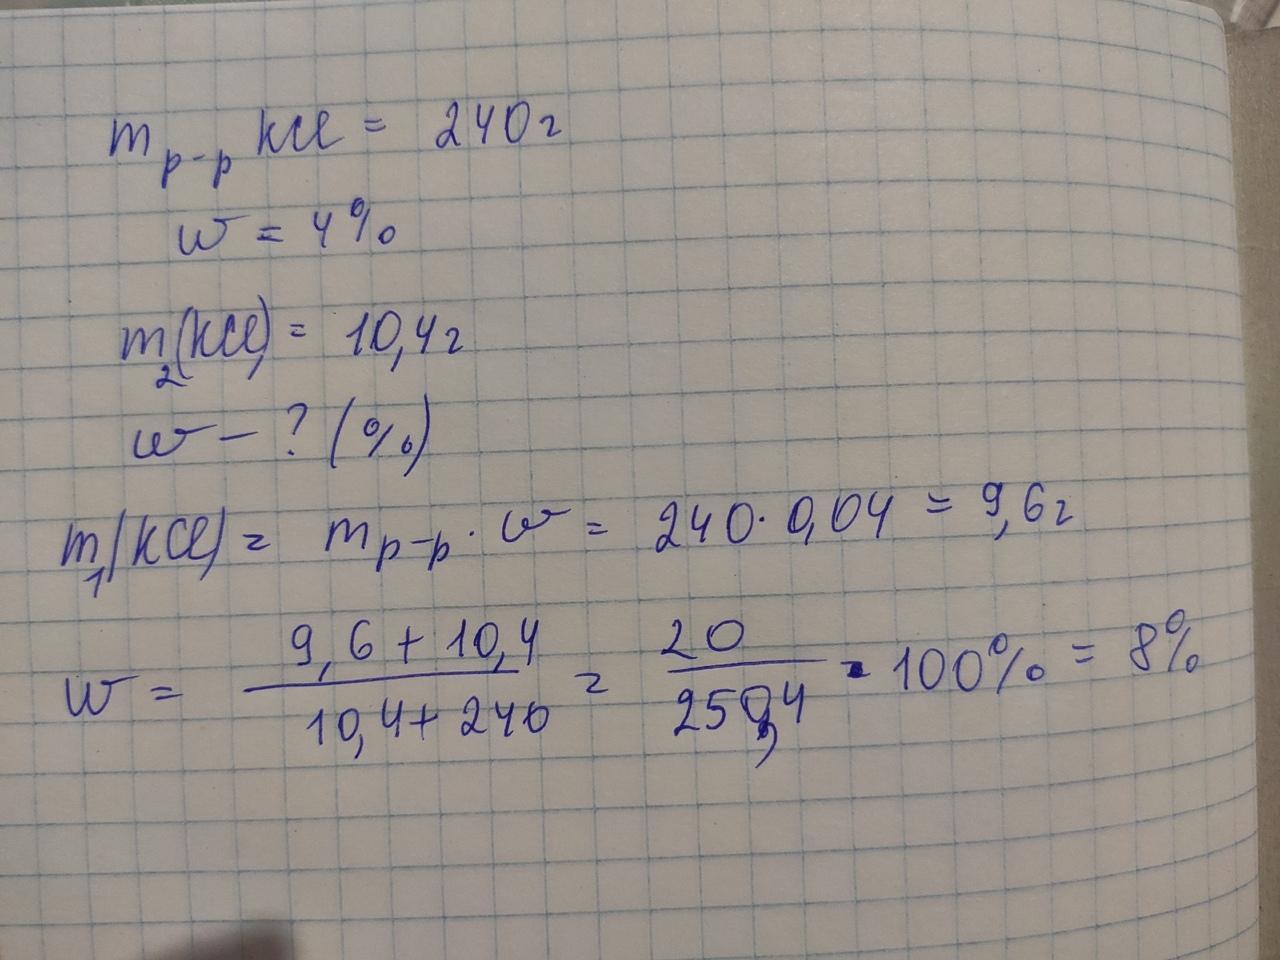 m р-р KCl = 240г
w = 4%
m₂(KCl) = 10,4г
w – ? (%)
m₁(KCl) = m р-р · w = 240 · 0,04 = 9,6г
w = (9,6 + 10,4)/(10,4 + 240) = 20/250,4 · 100% = 8%